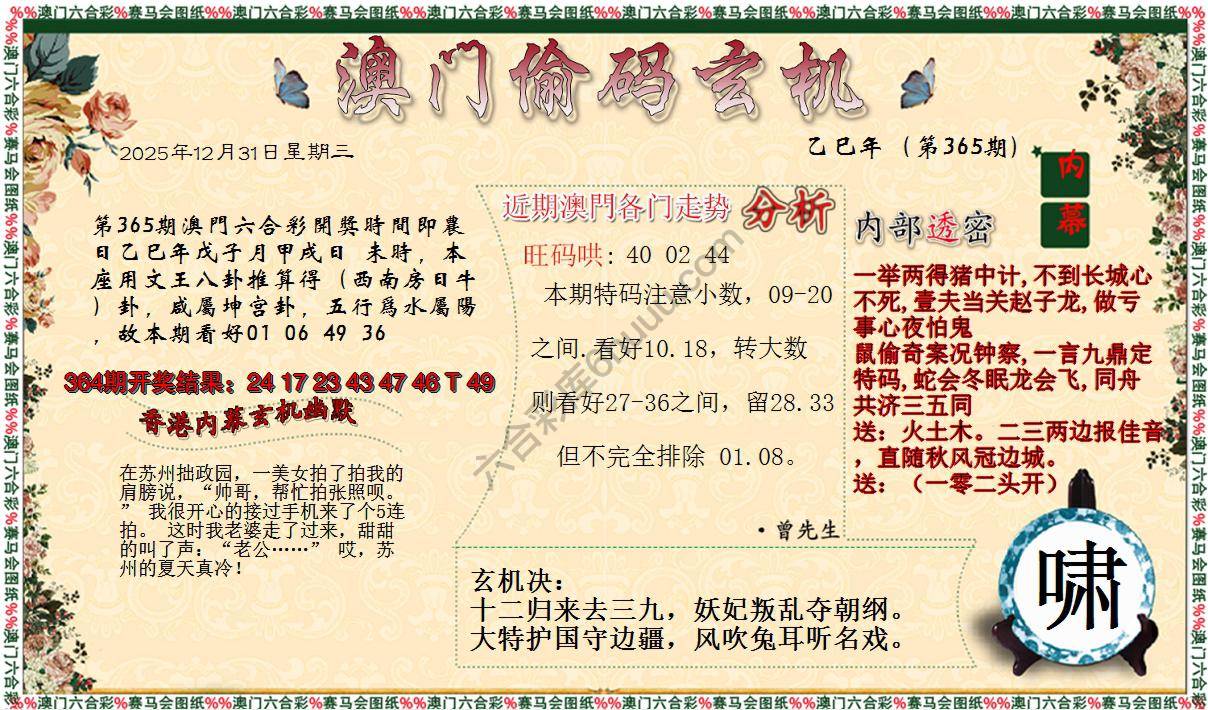 %%澳门六合彩%赛马会图纸%%澳门六合彩%赛马会图纸%%澳门六合彩%赛马会图纸%%澳门六合彩%赛马会图纸%%澳门六合彩%赛马会图纸%%澳门六合彩%赛马会图纸%%
澳门偷码玄机
2025年12月31日星期三
乙巳年（第365期）
内
幕
第365期澳門六合彩開獎時間即農
日乙巳年戊子月甲戌日 未時，本
座用文王八卦推算得（西南房日牛
）卦，咸屬坤宫卦，五行爲水屬陽
，故本期看好01 06 49 36
364期开奖结果：24 17 23 43 47 46 T 49
香港内幕玄机幽默
在苏州拙政园，一美女拍了拍我的
肩膀说，“帅哥，帮忙拍张照呗。
” 我很开心的接过手机来了个5连
拍。 这时我老婆走了过来，甜甜
的叫了声：“老公……” 哎，苏
州的夏天真冷！
近期澳門各门走势 分析
旺码哄: 40 02 44
本期特码注意小数，09-20
之间.看好10.18，转大数
则看好27-36之间，留28.33
但不完全排除 01.08。
·曾先生
内部透密
一举两得猪中计,不到长城心
不死,壹夫当关赵子龙,做亏
事心夜怕鬼
鼠偷奇案况钟察,一言九鼎定
特码,蛇会冬眠龙会飞,同舟
共济三五同
送：火土木。二三两边报佳音
，直随秋风冠边城。
送：（一零二头开）
玄机决：
十二归来去三九，妖妃叛乱夺朝纲。
大特护国守边疆，风吹兔耳听名戏。
啸
%%澳门六合彩%赛马会图纸%%澳门六合彩%赛马会图纸%%澳门六合彩%赛马会图纸%%澳门六合彩%赛马会图纸%%澳门六合彩%赛马会图纸%%澳门六合彩%赛马会图纸%%